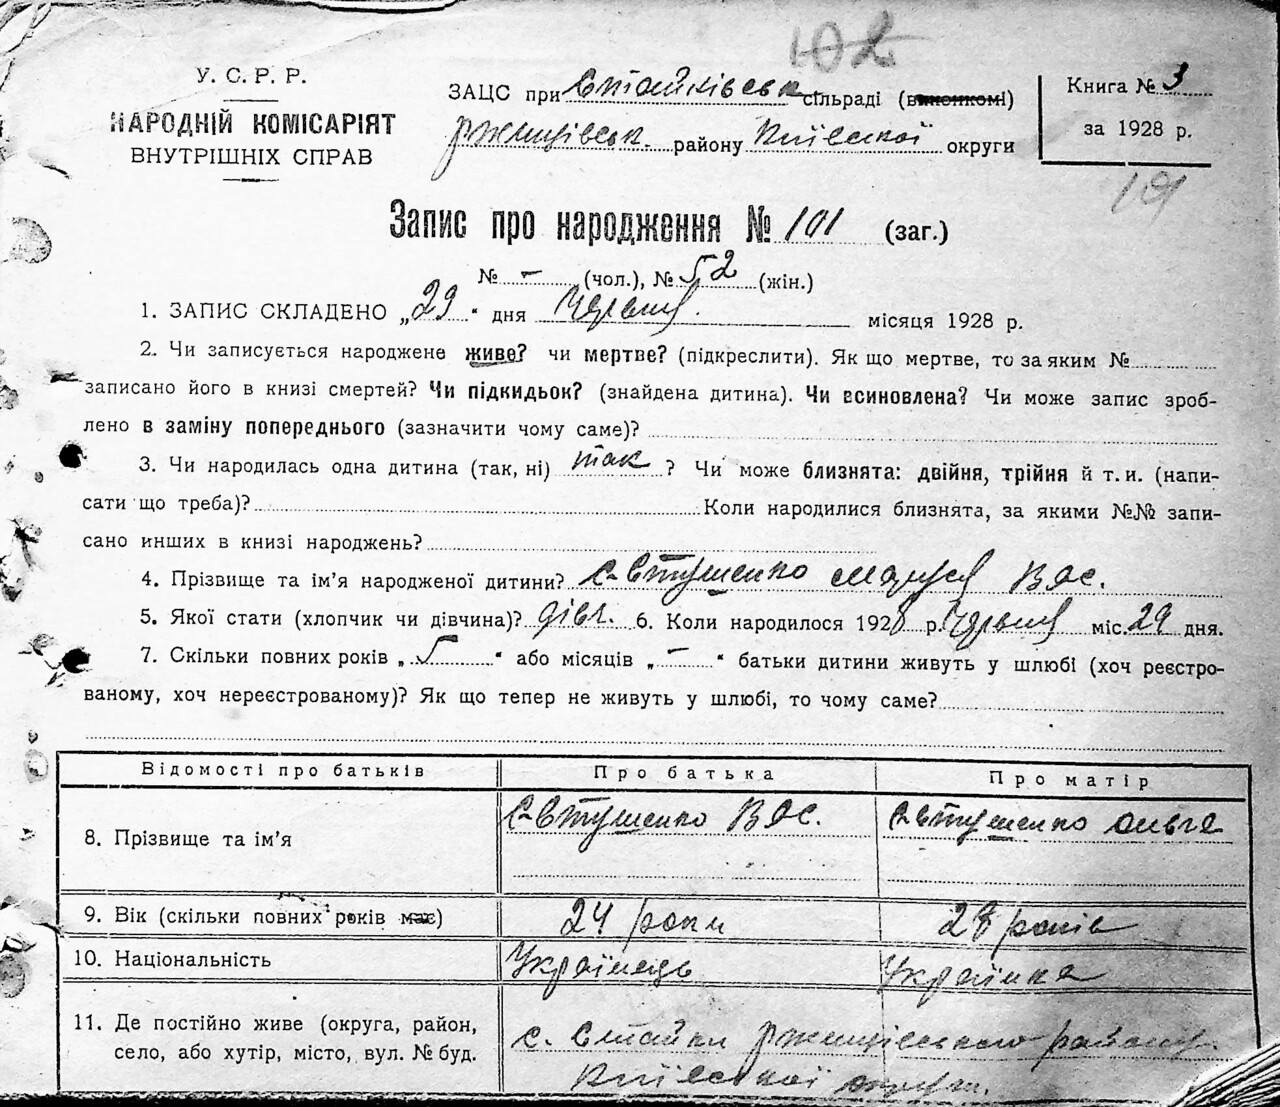 102
У. С. Р. Р.
НАРОДНІЙ КОМІСАРІЯТ
ВНУТРІШНІХ СПРАВ
ЗАЦС при Стайківськ сільраді (виконкомі)
Ржищівськ. району Київської округи
Книга № 3
за 1928 р.
191
Запис про народження № 101 (заг.)
№ - (чол.), № 52 (жін.)
1. ЗАПИС СКЛАДЕНО „29“ дня Червня місяця 1928 р.
2. Чи записується народжене живе? чи мертве? (підкреслити). Як що мертве, то за яким №
записано його в книзі смертей? Чи підкидьок? (знайдена дитина). Чи всиновлена? Чи може запис зроб-
лено в заміну попереднього (зазначити чому саме)?
3. Чи народилась одна дитина (так, ні) так ? Чи може близнята: двійня, трійня й т. и. (напи-
сати що треба)? Коли народилися близнята, за якими №№ запи-
сано инших в книзі народжень?
4. Прізвище та ім’я народженої дитини? Євтушенко Маруся Вас.
5. Якої стати (хлопчик чи дівчина)? дівч. 6. Коли народилося 1928 р. Червня міс. 29 дня.
7. Скільки повних років „5“ або місяців „-“ батьки дитини живуть у шлюбі (хоч реєстро-
ваному, хоч нереєстрованому)? Як що тепер не живуть у шлюбі, то чому саме?
Відомості про батьків Про батька Про матір
8. Прізвище та ім’я Євтушенко Вас. Євтушенко Ольга
9. Вік (скільки повних років має) 24 роки 28 років
10. Національність Українець Українка
11. Де постійно живе (округа, район, с. Стайки Ржищівського району
село, або хутір, місто, вул. № буд. Київської округи.